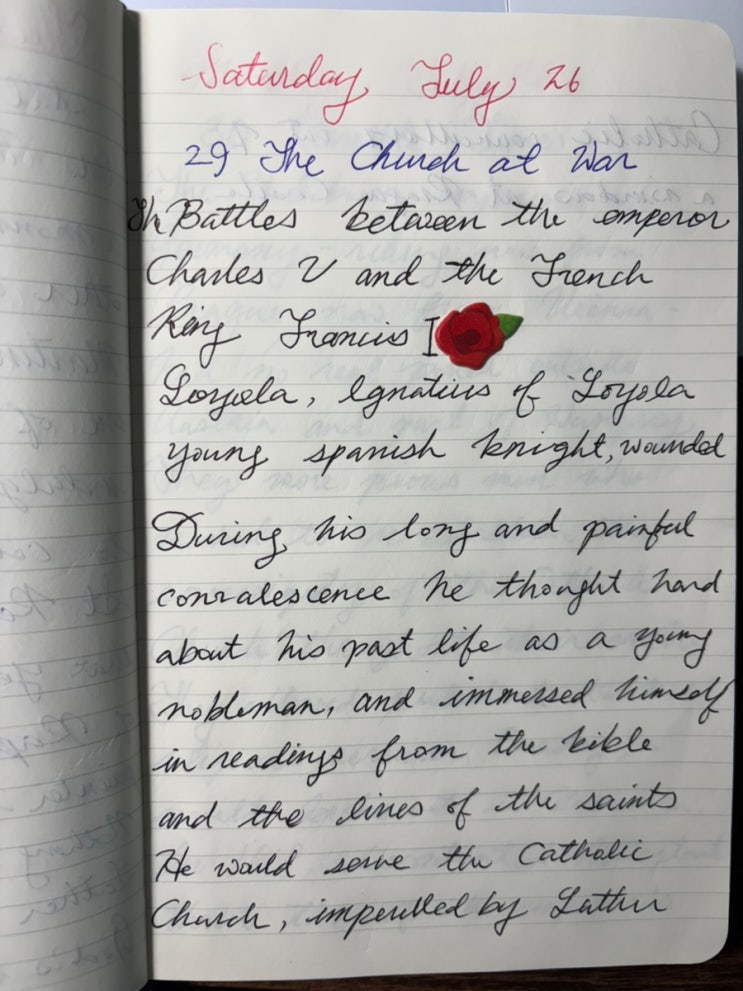 Saturday July 26
29 The Church at War
Th Battles between the emperor
Charles V and the French
King Francis I
Loyola, Ignatius of Loyola
young spanish knight, wounded
During his long and painful
convalescence he thought hard
about his past life as a young
nobleman, and immersed himself
in readings from the bible
and the lives of the saints
He would serve the Catholic
Church, imperilled by Luther